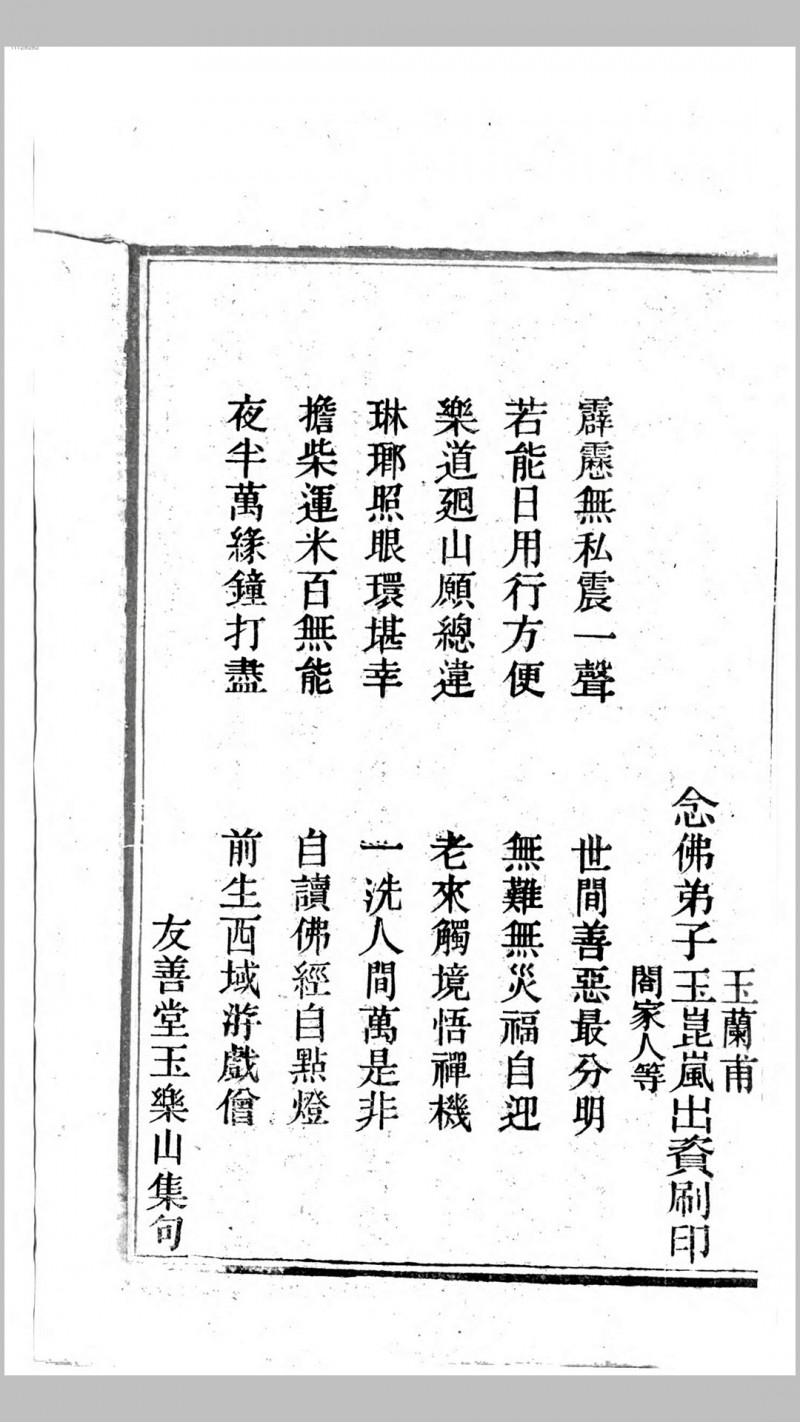 玉蘭甫
念佛弟子玉崑嵐出資刷印
閤家人等
霹靂無私震一聲　世間善惡最分明
若能日用行方便　無難無災福自迎
樂道廻山願總違　老來觸境悟禪機
琳瑯照眼環堪幸　一洗人間萬是非
擔柴運米百無能　自讀佛經自點燈
夜半萬緣鐘打盡　前生西域游戲僧
友善堂玉樂山集句